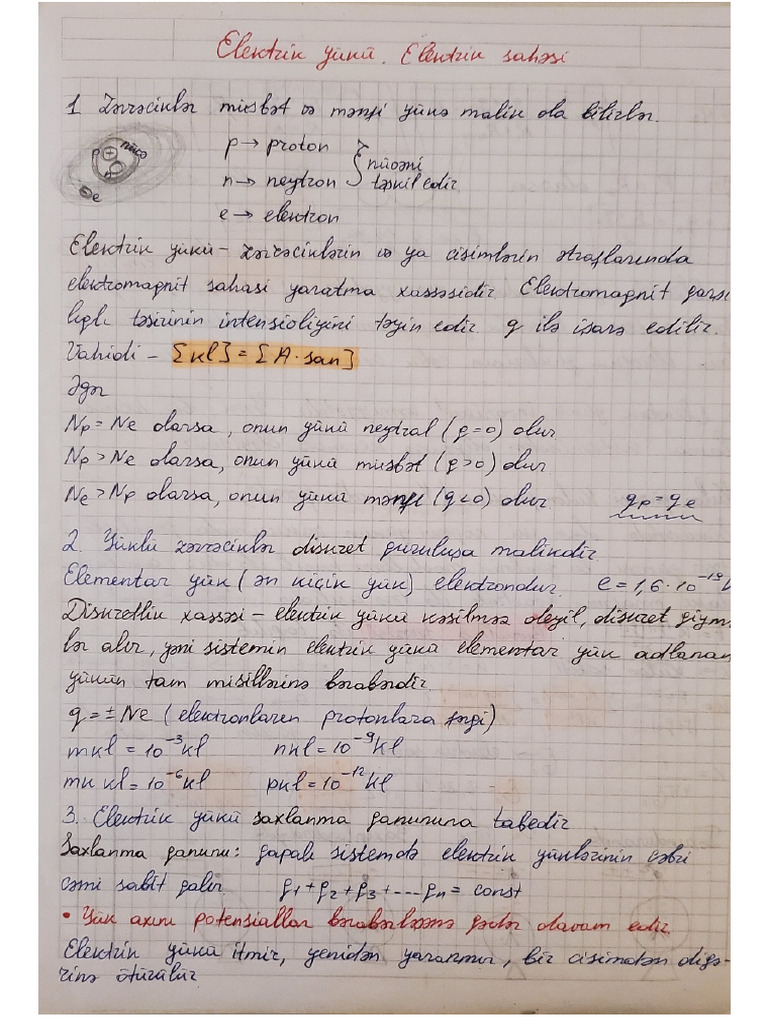 Elektrik yükü. Elektrik sahəsi
1 Zərrəciklər müsbət və mənfi yükə malik ola bilirlər.
nüvə
p n
e
p → proton
n → neytron
nüvəni
təşkil edir
e → elektron
Elektrik yükü – zərrəciklərin və ya cisimlərin ətraflarında
elektromaqnit sahəsi yaratma xassəsidir Elektromaqnit qarşı
lıqlı təsirinin intensivliyini təyin edir. q ilə işarə edilir.
Vahidi – [Kl] = [A · san]
Əgər
Np = Ne olarsa, onun yükü neytral (q=0) olur
Np > Ne olarsa, onun yükü müsbət (q>0) olur
Ne > Np olarsa, onun yükü mənfi (q<0) olur.
qp = qe
2. Yüklü zərrəciklər diskret quruluşa malikdir.
Elementar yük (ən kiçik yük) elektrondur. e = 1,6 · 10⁻¹⁹ k
Diskretlik xassəsi – elektrik yükü kəsilməz deyil, diskret qiym
lər alır, yəni sistemin elektrik yükü elementar yük adlanan
yükün tam misillərinə bərabərdir.
q = ± Ne (elektronların protonlara fərqi)
mkl = 10⁻³ Kl nkl = 10⁻⁹ Kl
mk kl = 10⁻⁶ Kl pkl = 10⁻¹² Kl
3. Elektrik yükü saxlanma qanununa tabedir
Saxlanma qanunu: qapalı sistemdə elektrik yüklərinin cəbri
cəmi sabit qalır. q₁ + q₂ + q₃ + ... qₙ = const
• Yük axını potensiallar bərabərləşənə qədər davam edir.
Elektrik yükü itmir, yenidən yaranmır, bir cisimdən digə-
rinə ötürülür